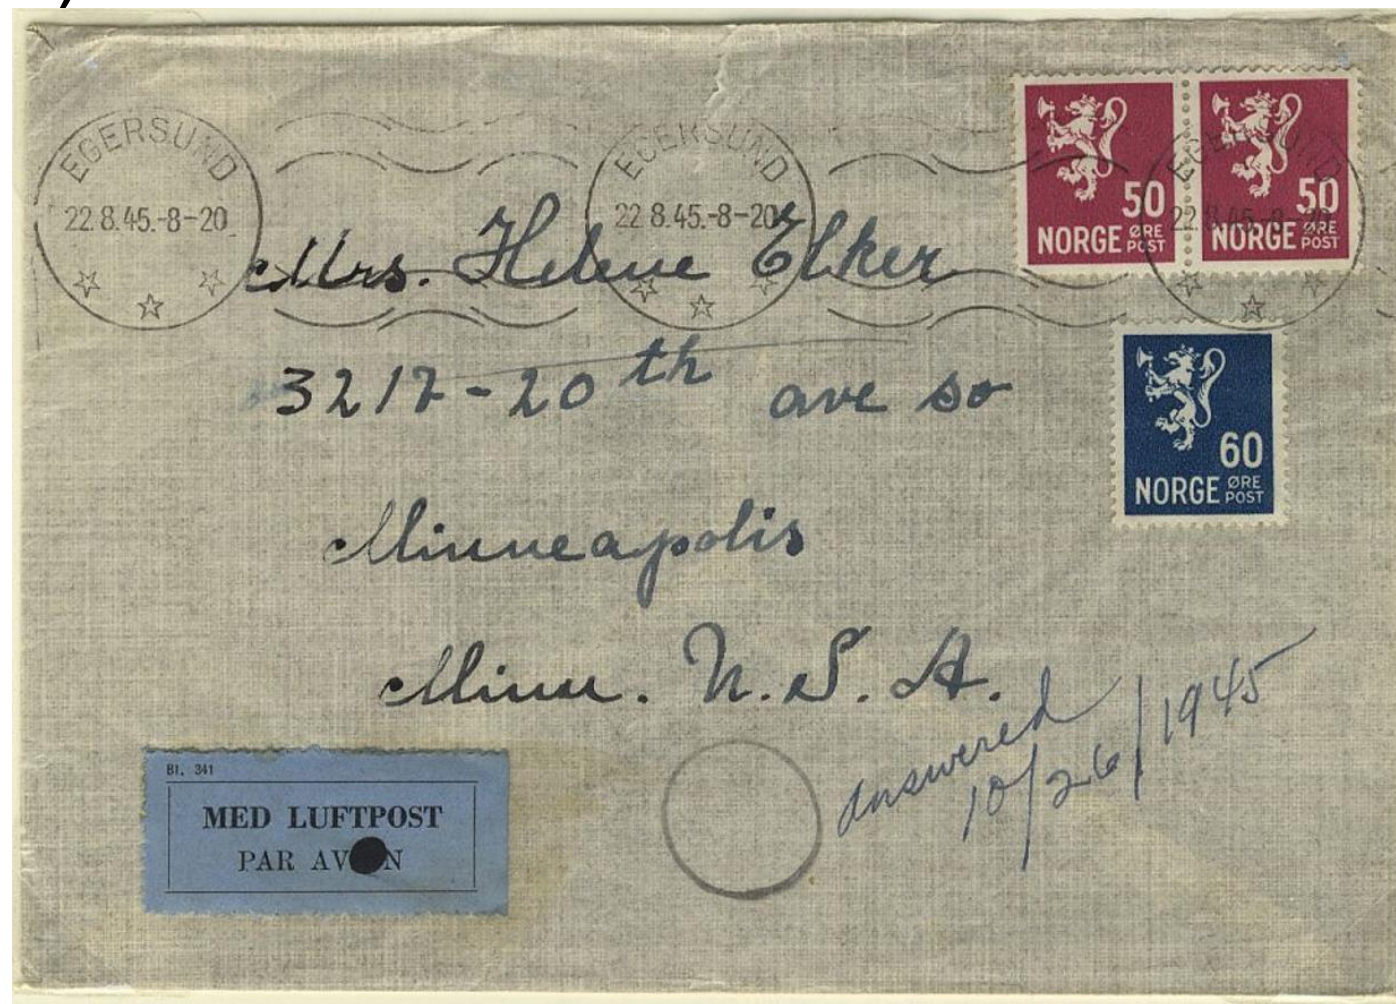 EGERSUND
22.8.45.-8-20
EGERSUND
22 8.45.-8-20
EGERSUND
22.8.45.-8-20
50
NORGE ØRE POST
50
NORGE ØRE POST
60
NORGE ØRE POST
Mrs. Helene Elker
3217-20th ave so
Minneapolis
Minn. U.S.A.
answered
10/26/1945
Bl. 341
MED LUFTPOST
PAR AV N